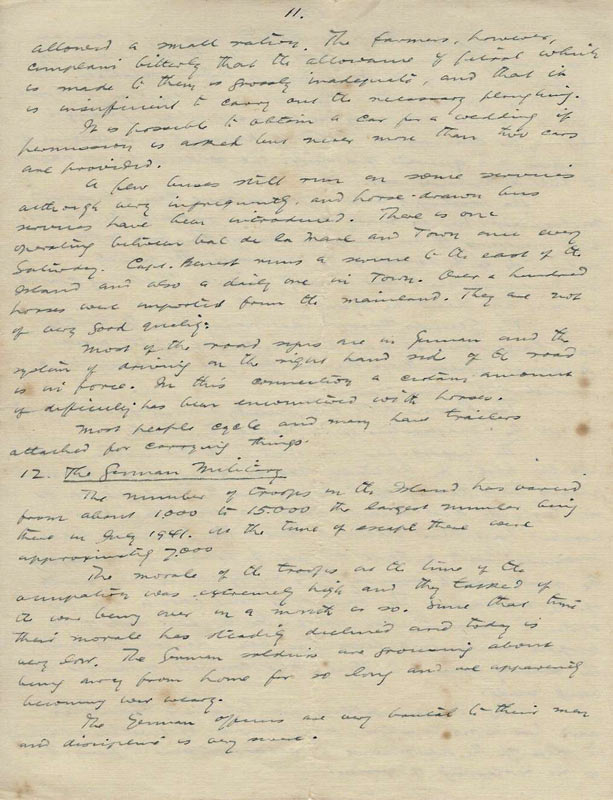 11.
allowed a small ration. The farmers, however,
complain bitterly that the allowance of petrol which
is made to them is grossly inadequate, and that it
is insufficient to carry out the necessary ploughing.
It is possible to obtain a car for a wedding if
permission is asked but never more than two cars
are provided.
A few buses still run on some services
although very infrequently, and horse-drawn bus
services have been introduced. There is one
operating between Val de la Mare and Town once every
Saturday. Capt. Benest runs a service to the east of the
Island and also a daily one in Town. Over a hundred
horses were imported from the mainland. They are not
of very good quality.
Most of the road signs are in German and the
system of driving on the right hand side of the road
is in force. In this connection a certain amount
of difficulty has been encountered with horses.
Most people cycle and many have trailers
attached for carrying things.
12. The German Military
The number of troops in the Island has varied
from about 1,000 to 15.000 the largest number being
there in July 1941. At the time of escape there were
approximately 7,000
The morale of the troops at the time of the
occupation was extremely high and they talked of
the war being over in a month or so. Since that time
their morale has steadily declined and today is
very low. The German soldiers are grousing about
being away from home for so long and are apparently
becoming war weary.
The German officers are very brutal to their men
and discipline is very severe.